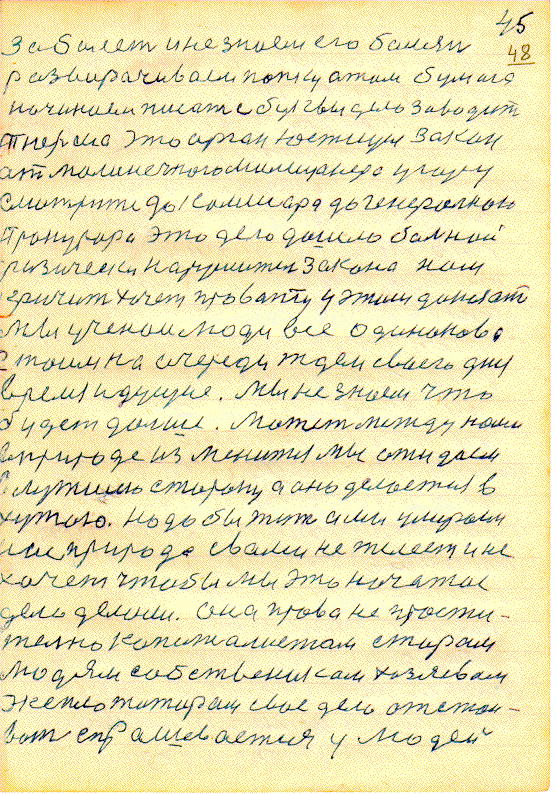 45
48
заболеет и не знаем его болезн
разварачиваем папку атам бумага
начинаем писат с буквы дело заводит
Тперша это орган юстиции закон
ат милицейского милицянера угору
смотрите до комисара до генеральною
Пракурора это дело дошло болной
физически нарушител закона нам
кричит хочет правапту у этом данят
мы ученои люди все одинаково
стоим на очереди ждем своего дня
время идущие. Мы не знаем что
будет далше. Может между нами
в природе изменится мы ожидаем
в лутшею сторону а оно делается в
хужою. Надо бы жит а мы умираем
нас природа с вами не жалеет и не
хочет чтобы мы это начатое
дело делали. Она права не прости-
телно капиталистам старам
людям собственикам хазяевам
экеплотатарам свое дело отстаи-
ват спрашивается у людей